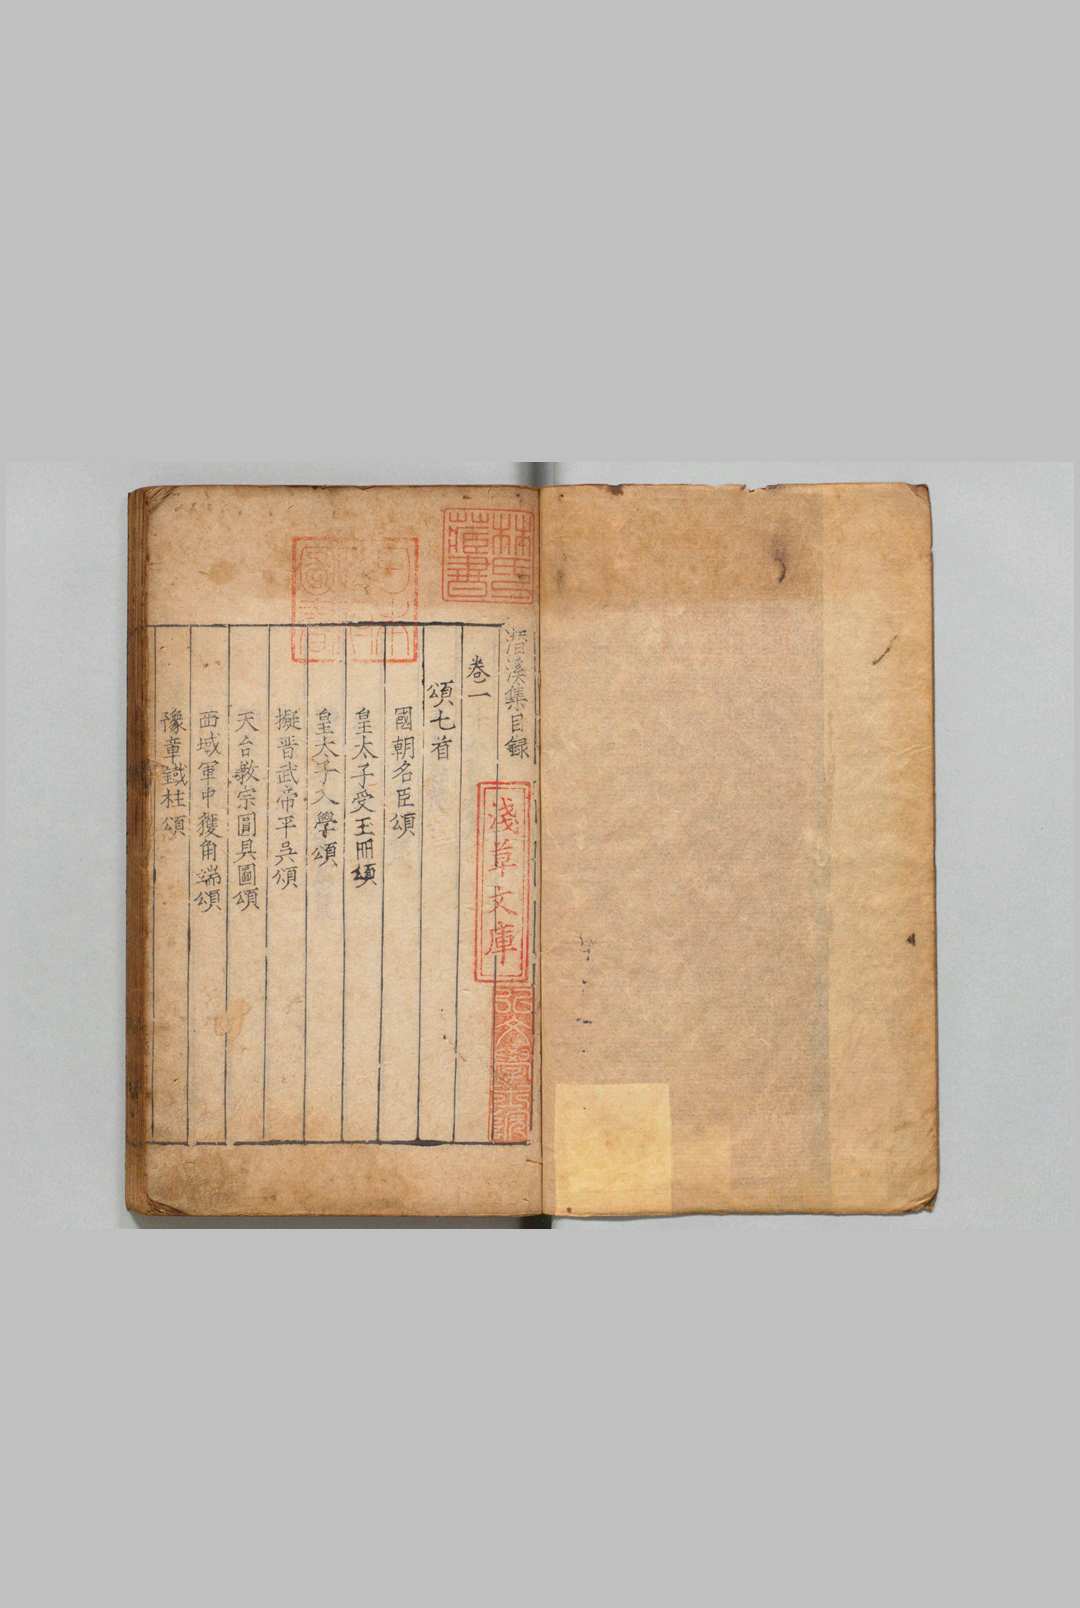 潛溪集目録
卷一
頌七首
國朝名臣頌
皇太子受玉冊頌
皇太子入學頌
擬晋武帝平吳頌
天台教宗圓具圖頌
西域軍中獲角端頌
豫章鐵柱頌
林氏藏書
日本
淺草文庫